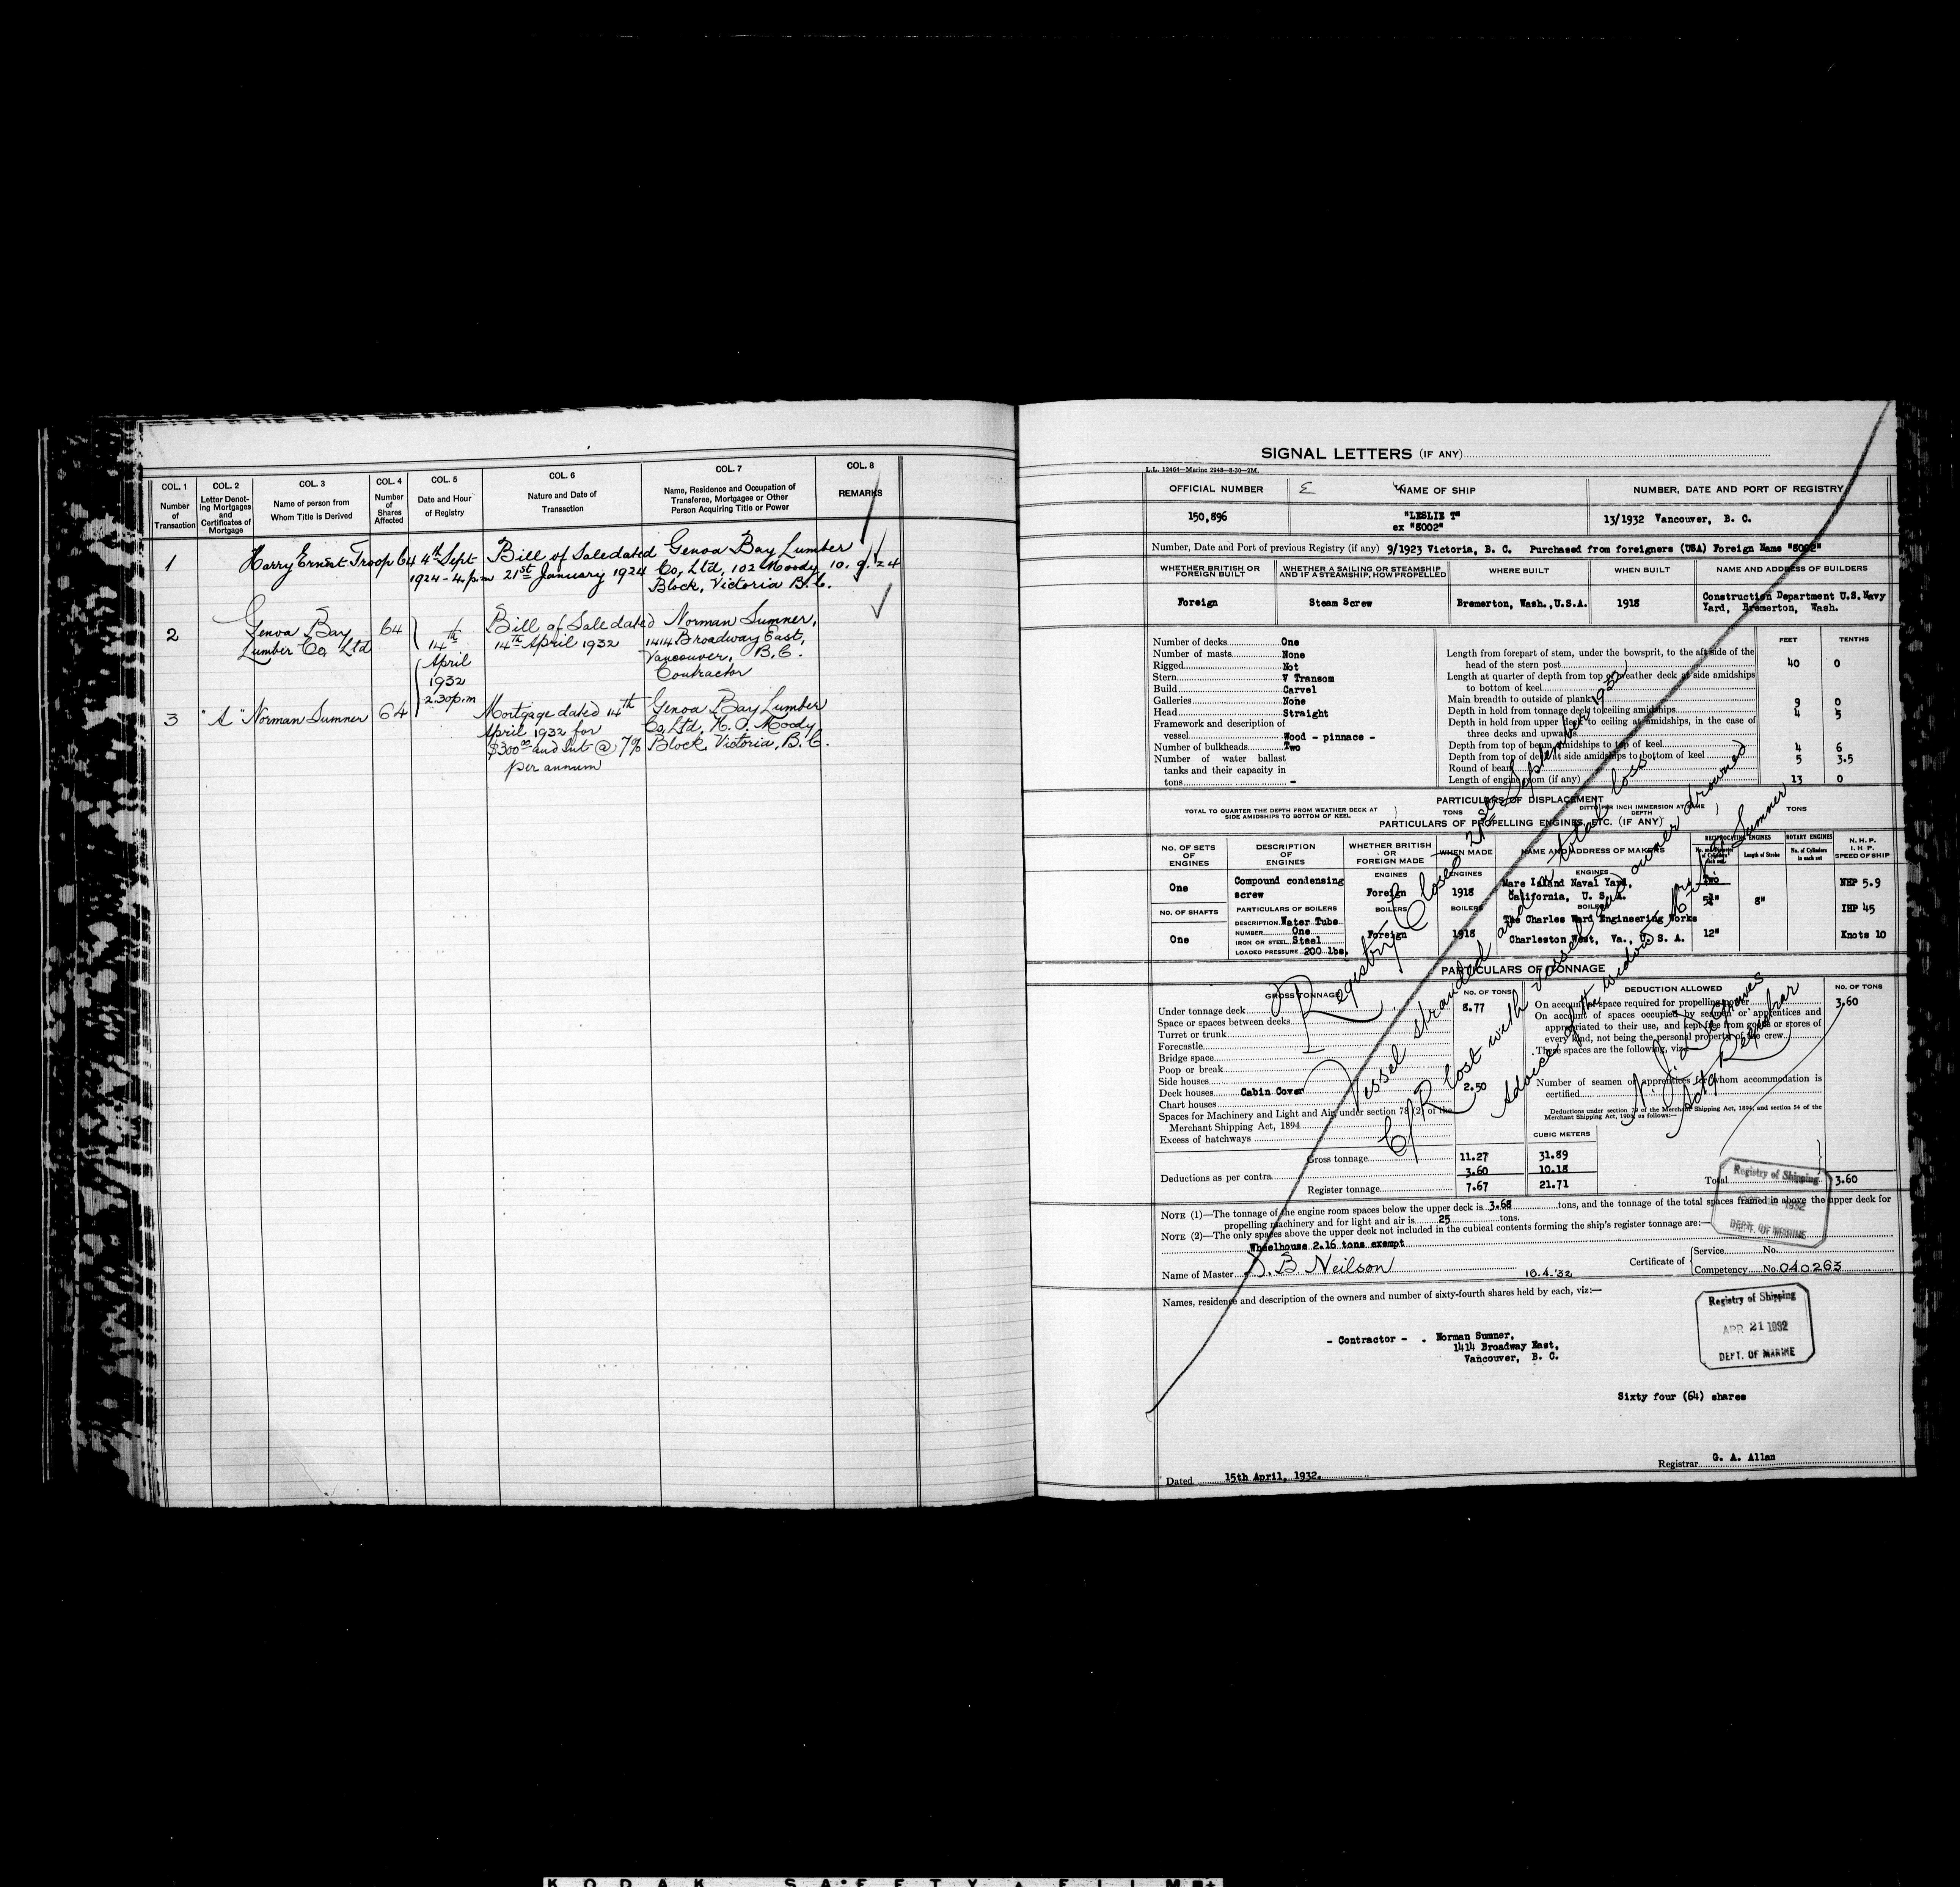 COL. 1
Number
of
Transaction
COL. 2
Letter Denot-
ing Mortgages
and
Certificates of
Mortgage
COL. 3
Name of person from
Whom Title is Derived
COL. 4
Number
of
Shares
Affected
COL. 5
Date and Hour
of Registry
COL. 6
Nature and Date of
Transaction
COL. 7
Name, Residence and Occupation of
Transferee, Mortgagee or Other
Person Acquiring Title or Power
COL. 8
REMARKS
1 Harry Ernest Troop 64 4th Sept Bill of Sale dated Genoa Bay Lumber
1924 - 4 p.m 21st January 1924 Co, Ltd, 102 Moody 10. 9. 24
Block, Victoria B.C.
2 Genoa Bay 64 14th Bill of Sale dated Norman Sumner,
Lumber Co, Ltd April 14th April 1932 1414 Broadway East,
1932 Vancouver, B.C.
2.30 p.m Contractor
3 "A" Norman Sumner 64 Mortgage dated 14th Genoa Bay Lumber
April 1932 for Co, Ltd, Moody
$300.00 and Int @ 7% Block, Victoria, B.C.
per annum
SIGNAL LETTERS (IF ANY)
L.L. 12464—Marine 2948—8-30—2M.
OFFICIAL NUMBER
E
NAME OF SHIP
NUMBER, DATE AND PORT OF REGISTRY
150,896
"LESLIE T"
ex "8002"
13/1932 Vancouver, B. C.
Number, Date and Port of previous Registry (if any) 9/1923 Victoria, B. C. Purchased from foreigners (USA) Foreign Name "8002"
WHETHER BRITISH OR
FOREIGN BUILT
WHETHER A SAILING OR STEAMSHIP
AND IF A STEAMSHIP, HOW PROPELLED
WHERE BUILT
WHEN BUILT
NAME AND ADDRESS OF BUILDERS
Foreign
Steam Screw
Bremerton, Wash.,U.S.A.
1918
Construction Department U.S.Navy
Yard, Bremerton, Wash.
Number of decks One
Number of masts None
Rigged Not
Stern V Transom
Build Carvel
Galleries None
Head Straight
Framework and description of
vessel Wood - pinnace -
Number of bulkheads Two
Number of water ballast
tanks and their capacity in
tons -
FEET TENTHS
Length from forepart of stem, under the bowsprit, to the aft side of the
head of the stern post 40 0
Length at quarter of depth from top of weather deck at side amidships
to bottom of keel
Main breadth to outside of plank 9 0
Depth in hold from tonnage deck to ceiling amidships 4 5
Depth in hold from upper deck to ceiling at amidships, in the case of
three decks and upwards
Depth from top of beam amidships to top of keel 4 6
Depth from top of deck at side amidships to bottom of keel 5 3.5
Round of beam
Length of engine room (if any) 13 0
PARTICULARS OF DISPLACEMENT
TOTAL TO QUARTER THE DEPTH FROM WEATHER DECK AT
SIDE AMIDSHIPS TO BOTTOM OF KEEL
TONS
DITTO PER INCH IMMERSION AT SAME
DEPTH
TONS
PARTICULARS OF PROPELLING ENGINES, ETC. (IF ANY)
NO. OF SETS
OF
ENGINES
DESCRIPTION
OF
ENGINES
WHETHER BRITISH
OR
FOREIGN MADE
WHEN MADE
NAME AND ADDRESS OF MAKERS
RECIPROCATING ENGINES
Length of Stroke
ROTARY ENGINES
No. of Cylinders
in each set
N. H. P.
I. H P.
SPEED OF SHIP
One
Compound condensing
screw
ENGINES
Foreign
ENGINES
1918
ENGINES
Mare Island Naval Yard,
California, U. S. A.
Two
8"
NHP 5.9
IHP 45
NO. OF SHAFTS
PARTICULARS OF BOILERS
BOILERS
BOILERS
BOILERS
One
DESCRIPTION Water Tube
NUMBER One
IRON OR STEEL Steel
LOADED PRESSURE 200 lbs.
Foreign
1918
The Charles Ward Engineering Works
Charleston West, Va., U. S. A.
12"
Knots 10
PARTICULARS OF TONNAGE
GROSS TONNAGE
NO. OF TONS
DEDUCTION ALLOWED
NO. OF TONS
Under tonnage deck 8.77
Space or spaces between decks
Turret or trunk
Forecastle
Bridge space
Poop or break
Side houses
Deck houses Cabin Cover 2.50
Chart houses
Spaces for Machinery and Light and Air, under section 78 (2) of the
Merchant Shipping Act, 1894
Excess of hatchways
On account of space required for propelling power 3.60
On account of spaces occupied by seamen or apprentices and
appropriated to their use, and kept free from goods or stores of
every kind, not being the personal property of the crew
These spaces are the following, viz:
Number of seamen or apprentices for whom accommodation is
certified
Deductions under section 79 of the Merchant Shipping Act, 1894, and section 54 of the
Merchant Shipping Act, 1906, as follows:—
CUBIC METERS
Gross tonnage 11.27 31.89
Deductions as per contra 3.60 10.18
Register tonnage 7.67 21.71
Total 3.60
NOTE (1)—The tonnage of the engine room spaces below the upper deck is 3.68 tons, and the tonnage of the total spaces framed in above the upper deck for
propelling machinery and for light and air is 25 tons.
NOTE (2)—The only spaces above the upper deck not included in the cubical contents forming the ship's register tonnage are:—
Wheelhouse 2.16 tons exempt
Name of Master B Neilson 18.4.'32
Certificate of
Service No.
Competency No. 040263
Names, residence and description of the owners and number of sixty-fourth shares held by each, viz:—
- Contractor - Norman Sumner,
1414 Broadway East,
Vancouver, B. C.
Sixty four (64) shares
Dated 15th April, 1932.
Registrar G. A. Allan
Registry Closed 21st September 1932
Vessel stranded and total loss.
C/R lost with vessel and owner drowned
Advice of the widow Mrs Sumner
Registry of Shipping
1932
DEPT. OF MARINE
Registry of Shipping
APR 21 1932
DEPT. OF MARINE
KODAK SAFETY FILM